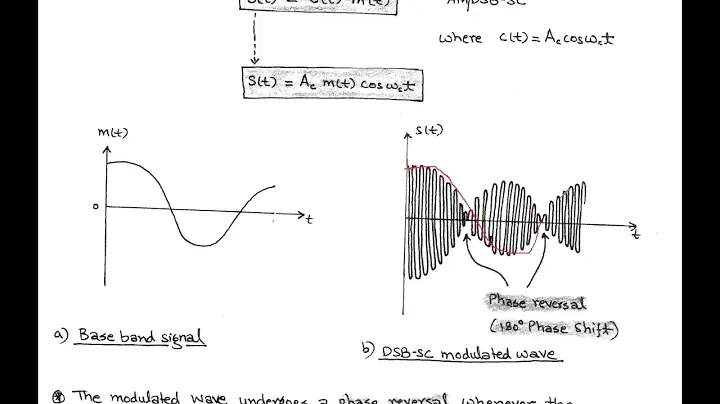 S(t) = c(t) m(t)
AM/DSB-SC
where c(t) = A_c cosω_c t
S(t) = A_c m(t) cosω_c t
m(t)
0
t
s(t)
t
Phase reversal
(180° Phase Shift)
a) Base band signal
b) DSB-SC modulated wave
The modulated wave undergoes a phase reversal whenever the